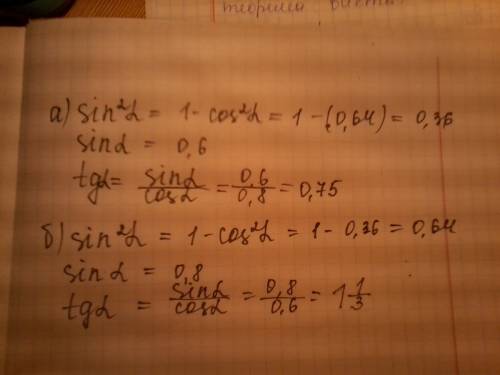 теоремы
а) sin²α = 1 - cos²α = 1 - (0,64) = 0,36
sinα = 0,6
tgα = sinα/cosα = 0,6/0,8 = 0,75
б) sin²α = 1 - cos²α = 1 - 0,36 = 0,64
sinα = 0,8
tgα = sinα/cosα = 0,8/0,6 = 1 1/3